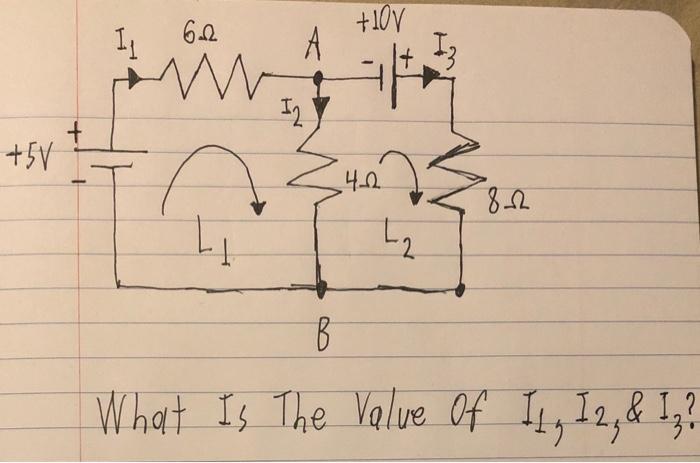 +10V
6Ω A - + I3
I1
I2
+
+5V
-
4Ω
8Ω
L1 L2
B
What Is The Value Of I1, I2, & I3?